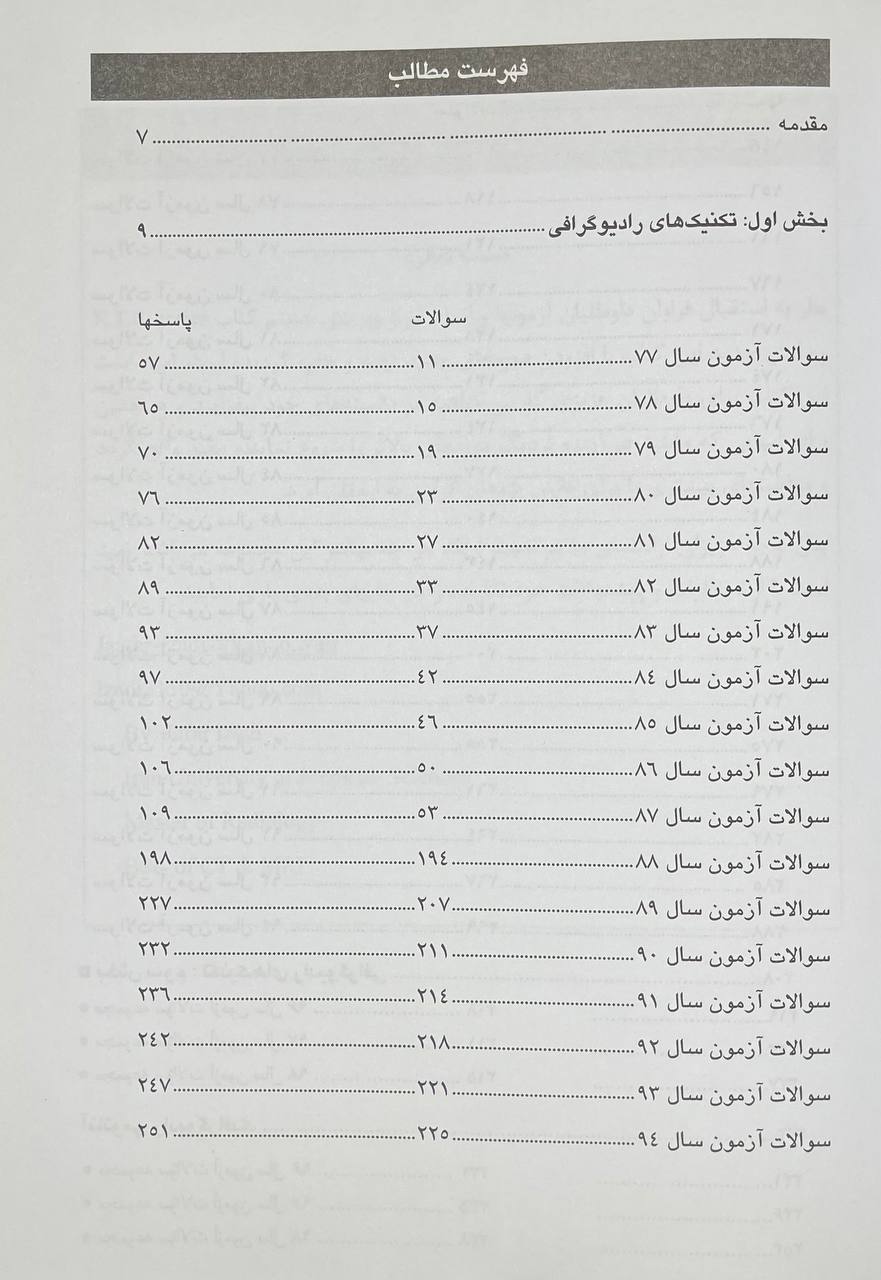 فهرست مطالب
مقدمه ........................................ ۷
بخش اول: تکنیک‌های رادیوگرافی ........................................ ۹
سوالات پاسخها
سوالات آزمون سال ۷۷ .................... ۱۱ .................... ۵۷
سوالات آزمون سال ۷۸ .................... ۱۵ .................... ٦۵
سوالات آزمون سال ۷۹ .................... ۱۹ .................... ۷۰
سوالات آزمون سال ۸۰ .................... ۲۳ .................... ۷٦
سوالات آزمون سال ۸۱ .................... ۲۷ .................... ۸۲
سوالات آزمون سال ۸۲ .................... ۳۳ .................... ۸۹
سوالات آزمون سال ۸۳ .................... ۳۷ .................... ۹۳
سوالات آزمون سال ۸٤ .................... ٤۲ .................... ۹۷
سوالات آزمون سال ۸۵ .................... ٤٦ .................... ۱۰۲
سوالات آزمون سال ۸٦ .................... ۵۰ .................... ۱۰٦
سوالات آزمون سال ۸۷ .................... ۵۳ .................... ۱۰۹
سوالات آزمون سال ۸۸ .................... ۱۹٤ .................... ۱۹۸
سوالات آزمون سال ۸۹ .................... ۲۰۷ .................... ۲۲۷
سوالات آزمون سال ۹۰ .................... ۲۱۱ .................... ۲۳۲
سوالات آزمون سال ۹۱ .................... ۲۱٤ .................... ۲۳٦
سوالات آزمون سال ۹۲ .................... ۲۱۸ .................... ۲٤۲
سوالات آزمون سال ۹۳ .................... ۲۲۱ .................... ۲٤۷
سوالات آزمون سال ۹٤ .................... ۲۲۵ .................... ۲۵۱